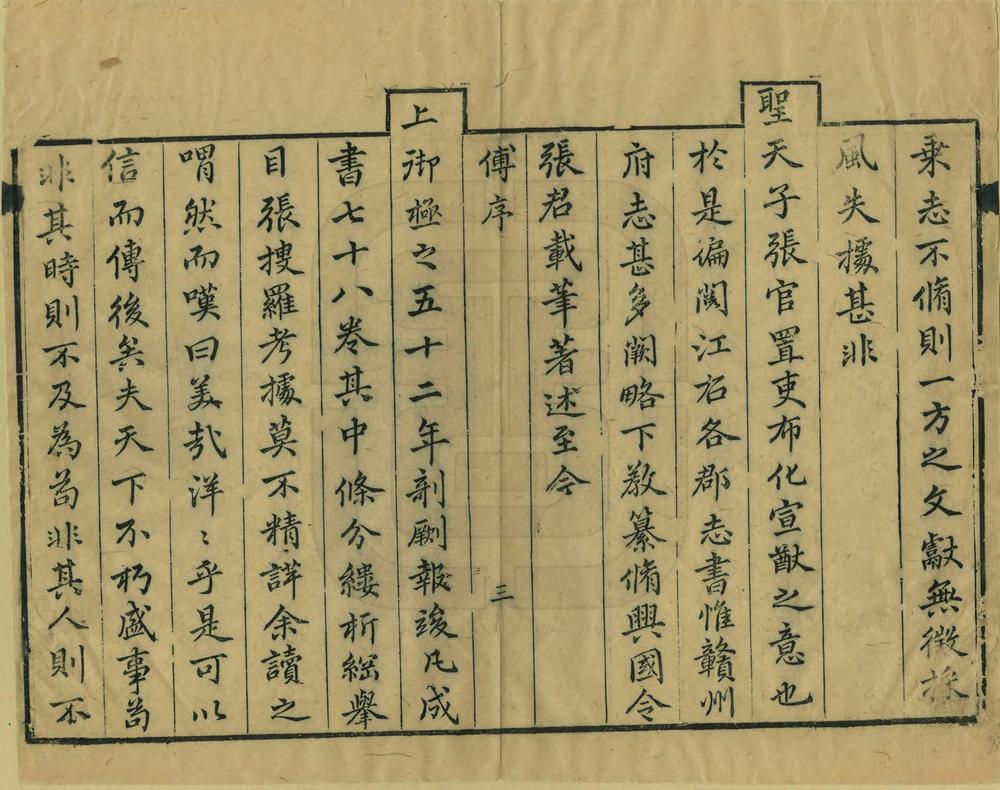 乗志不脩則一方之文獻無徴採
風失據甚非
聖天子張官置吏布化宣猷之意也
於是徧閱江右各郡志書惟贛州
府志甚多闕略下教纂脩興國令
張君載筆著述至今
傅序 三
上御極之五十二年剞劂報竣凡成
書七十八卷其中條分縷析綱舉
目張搜羅考據莫不精詳余讀之
喟然而嘆曰美哉洋〻乎是可以
信而傳後矣夫天下不朽盛事苟
非其時則不及為苟非其人則不